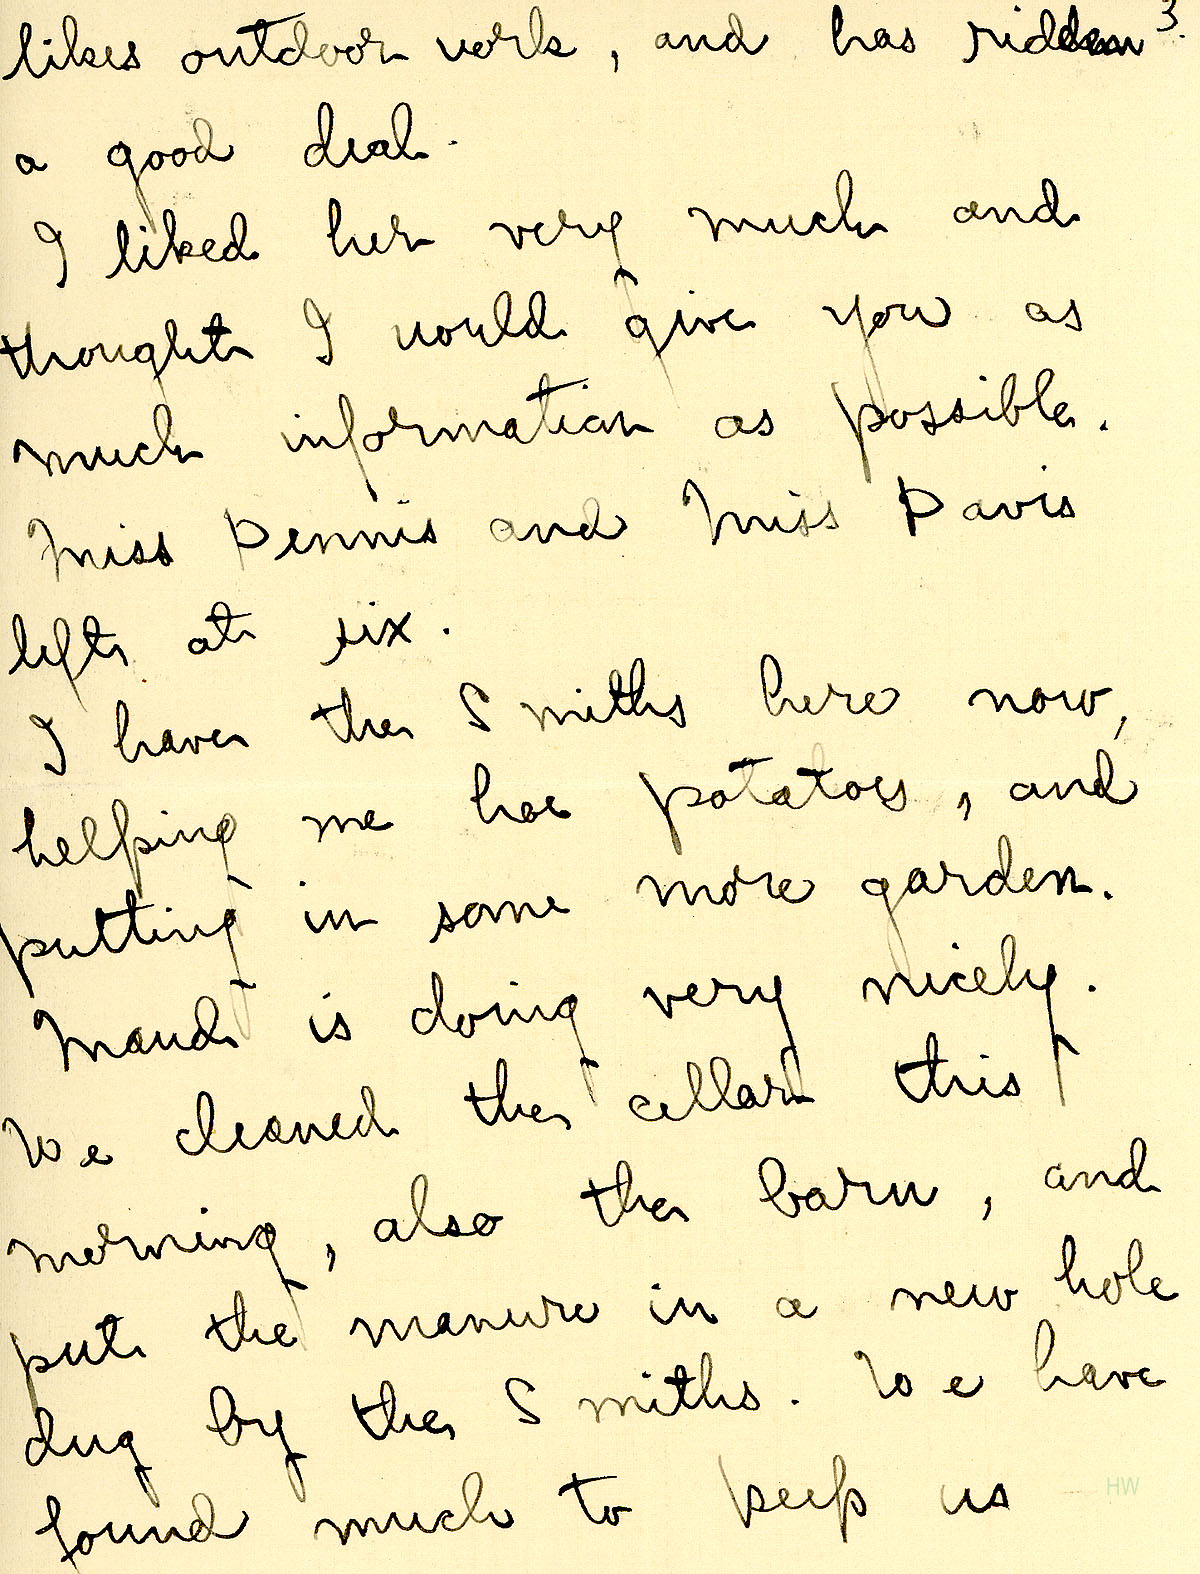 3.
likes outdoor work, and has ridden
a good deal.
I liked her very much and
thought I would give you as
much information as possible.
Miss Dennis and Miss Davis
left at six.
I have the Smiths here now,
helping me hoe potatoes, and
putting in some more garden.
Maud is doing very nicely.
We cleaned the cellar this
morning, also the barn, and
put the manure in a new hole
dug by the Smiths. We have
found much to keep us
HW